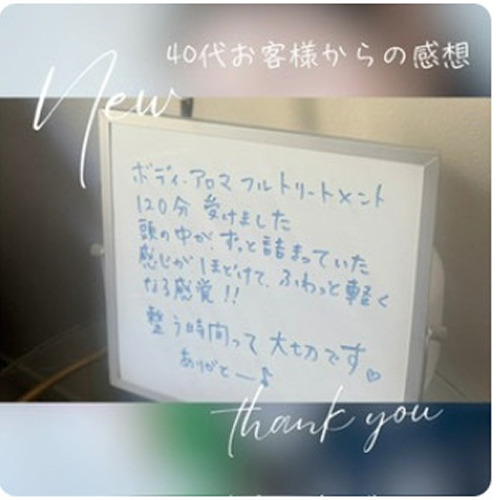 40代お客様からの感想
New
ボディ.アロマ フルトリートメント
120分 受けました
頭の中が、ずっと詰まっていた
感じがほどけて、ふわっと軽く
なる感覚!!
整う時間って大切です♡
ありがとー♪
thank you